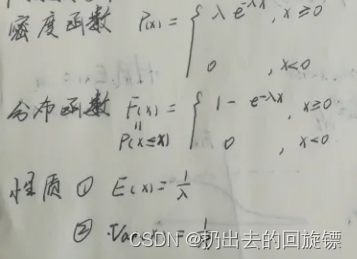 密度函数 P(x) = { λe^{-λx}, x≥0
0, x<0
分布函数 F(x) = { 1 - e^{-λx}, x≥0
P(X≤x) 0, x<0
性质 ① E(x) = 1/λ
② Var = 1/
CSDN @扔出去的回旋镖